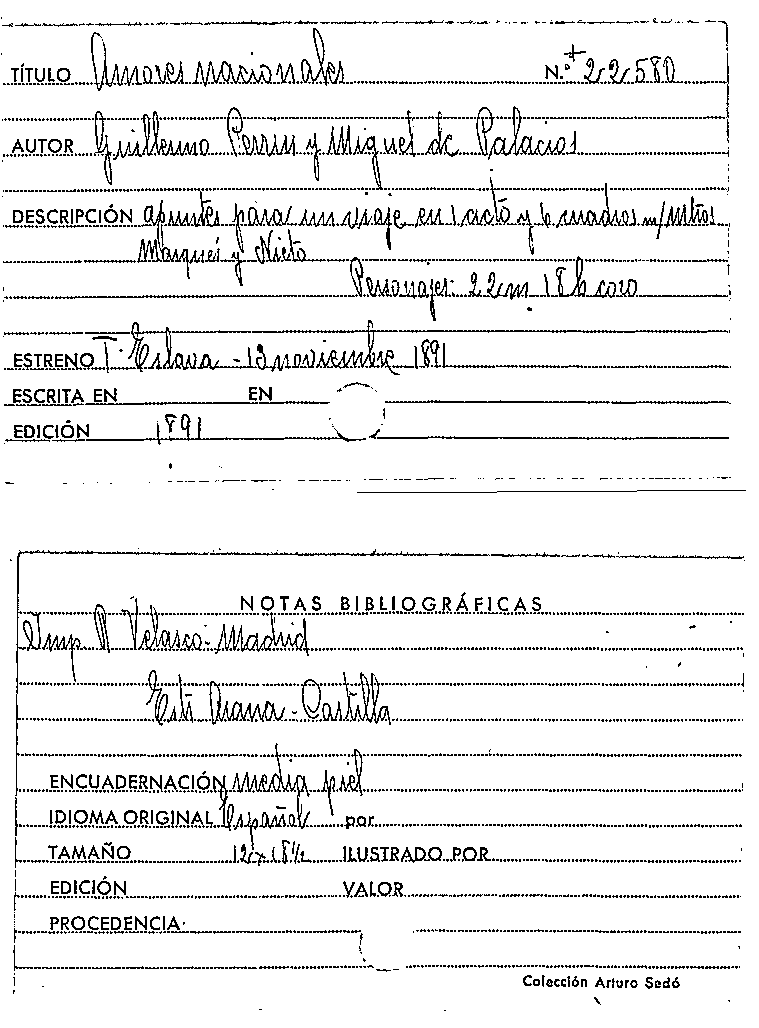 TÍTULO Amores nacionales N.º + 22580
AUTOR Guillermo Perrin y Miguel de Palacios
DESCRIPCIÓN apuntes para un viaje en 1 acto y 6 cuadros m/ mtros
Marqués y Nieto
Personajes: 22m 18h coro
ESTRENO T. Eslava - 13 noviembre 1891
ESCRITA EN EN
EDICIÓN 1891
NOTAS BIBLIOGRÁFICAS
Imp R Velasco - Madrid
Esti Arana - Castilla
ENCUADERNACIÓN media piel
IDIOMA ORIGINAL Español por
TAMAÑO 12 x 18½ ILUSTRADO POR
EDICIÓN VALOR
PROCEDENCIA
Colección Arturo Sedó